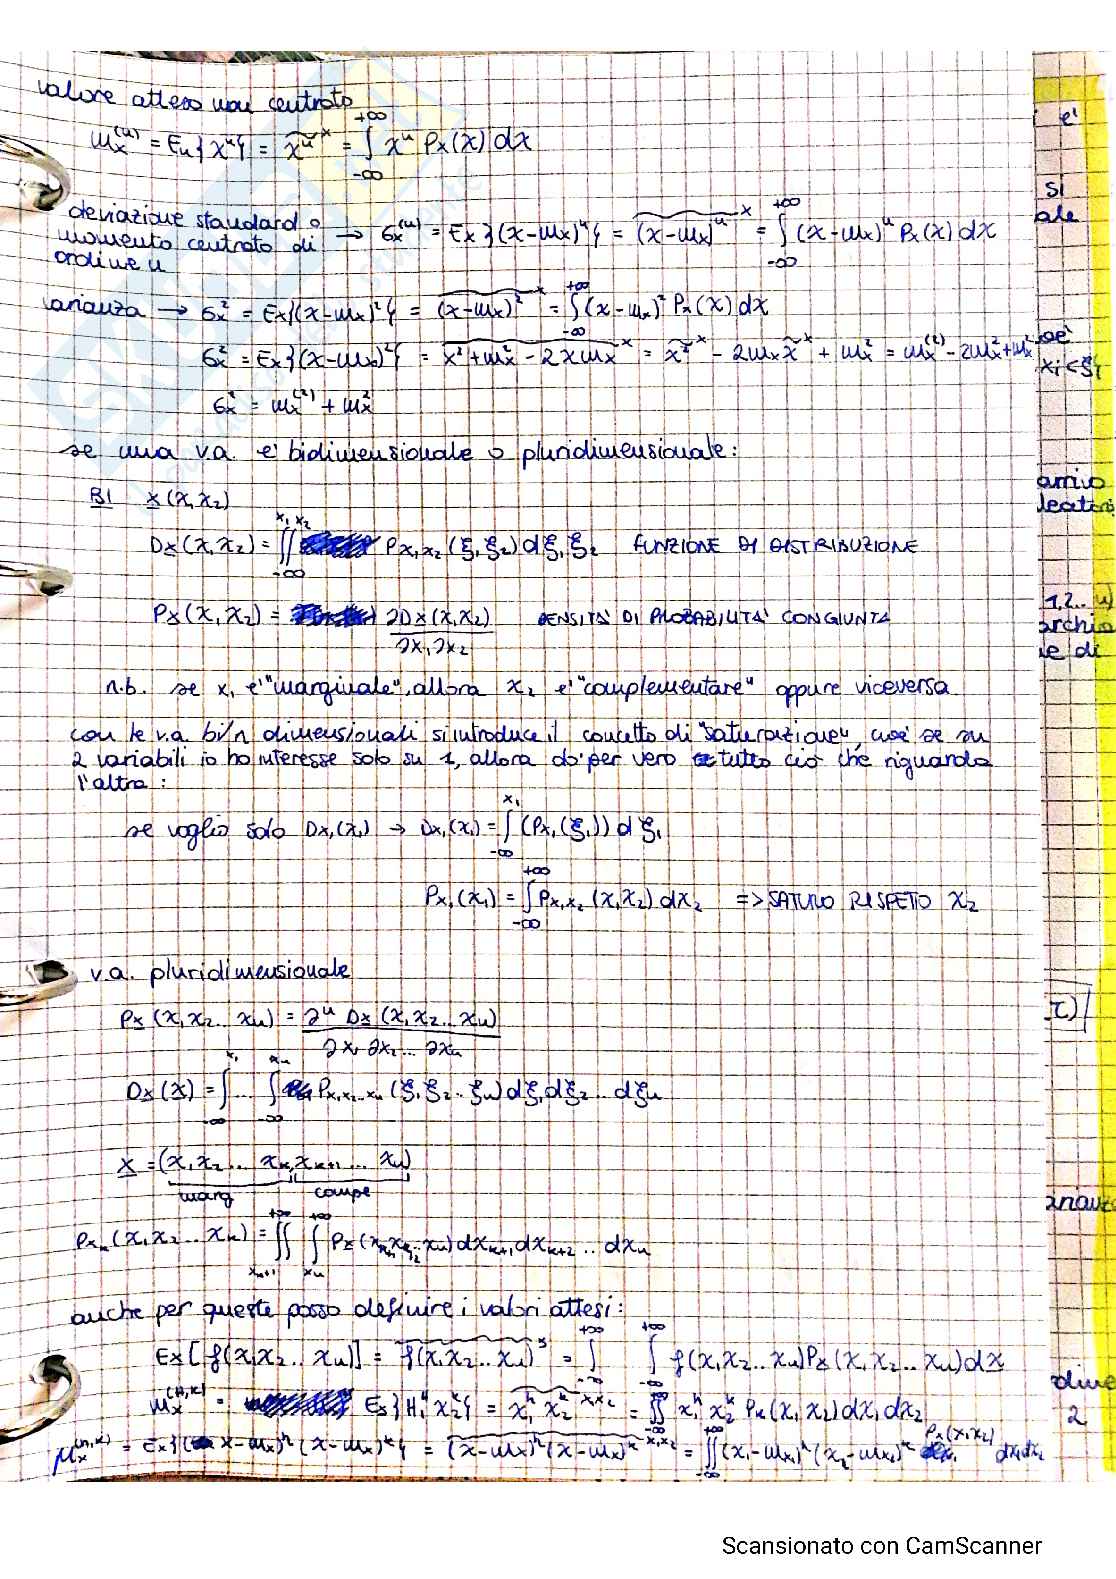 valore atteso non centrato
m_x^(n) = E_n{x^n} = x^n^x = ∫_-∞^+∞ x^n P_x(x) dx
deviazione standard o
momento centrato di → σ_x^(n) = E_x{(x-m_x)^n} = (x-m_x)^n^x = ∫_-∞^+∞ (x-m_x)^n P_x(x) dx
ordine n
varianza → σ_x^2 = E_x{(x-m_x)^2} = (x-m_x)^2^x = ∫_-∞^+∞ (x-m_x)^2 P_x(x) dx
σ_x^2 = E_x{(x-m_x)^2} = x^2+m_x^2-2xm_x^x = x^2^x - 2m_x x^x + m_x^2 = m_x^(2) - 2m_x^2 + m_x^2
σ_x^2 = m_x^(2) + m_x^2
se una v.a. e' bidimensionale o pluridimensionale:
BI x(x1 x2)
D_x(x1 x2) = ∫∫_-∞^x1 x2 P_x1x2(ξ1 ξ2) dξ1 ξ2 FUNZIONE DI DISTRIBUZIONE
P_x(x1 x2) = ∂D_x(x1 x2) / ∂x1 ∂x2 DENSITA' DI PROBABILITA' CONGIUNTA
n.b. se x1 e' "marginale", allora x2 e' "complementare" oppure viceversa
con le v.a. bi/n dimensionali si introduce il concetto di "saturazione", cioe' se su
2 variabili io ho interesse solo su 1, allora do' per vero tutto ciò che riguarda
l'altra:
se voglio solo D_x1(x1) → D_x1(x1) = ∫_-∞^x1 (P_x1(ξ1)) dξ1
P_x1(x1) = ∫_-∞^+∞ P_x1x2(x1 x2) dx2 => SATURO RISPETO X2
v.a. pluridimensionale
P_x(x1 x2 .. xn) = ∂^n D_x(x1 x2 .. xn) / ∂x1 ∂x2 ... ∂xn
D_x(x) = ∫_-∞^x1 ... ∫_-∞^xn P_x1x2..xn(ξ1 ξ2 .. ξn) dξ1 dξ2 ... dξn
x = (x1 x2 ... xk, xk+1 ... xn)
marg compe
P_xk(x1 x2 .. xk) = ∫∫_xn+1^+∞ ∫_xn^+∞ P_x( xn) dxk+1 dxk+2 .. dxn
anche per queste posso definire i valori attesi:
E_x[f(x1 x2 .. xn)] = f(x1 x2 .. xn)^x = ∫_-∞^+∞ ∫_-∞^+∞ f(x1 x2 ... xn) P_x(x1 x2 .. xn) dx
m_x^(h,k) = E_x{H1^h x2^k} = x1^h x2^k^x1x2 = ∫∫_-∞^∞ x1^h x2^k P_x(x1 x2) dx1 dx2
μ_x^(h,k) = E_x{(x-m_x)^h (x-m_x)^k} = (x-m_x)^h (x-m_x)^k^x1x2 = ∫∫_-∞^+∞ (x1-m_x1)^h (x2-m_x2)^k P_x(x1 x2) dx1 dx2
e'
si
ale
oe'
xi<ξi
arrivo
1,2.. n)
archio
ie di
τ)
arianza
dine
2
Scansionato con CamScanner